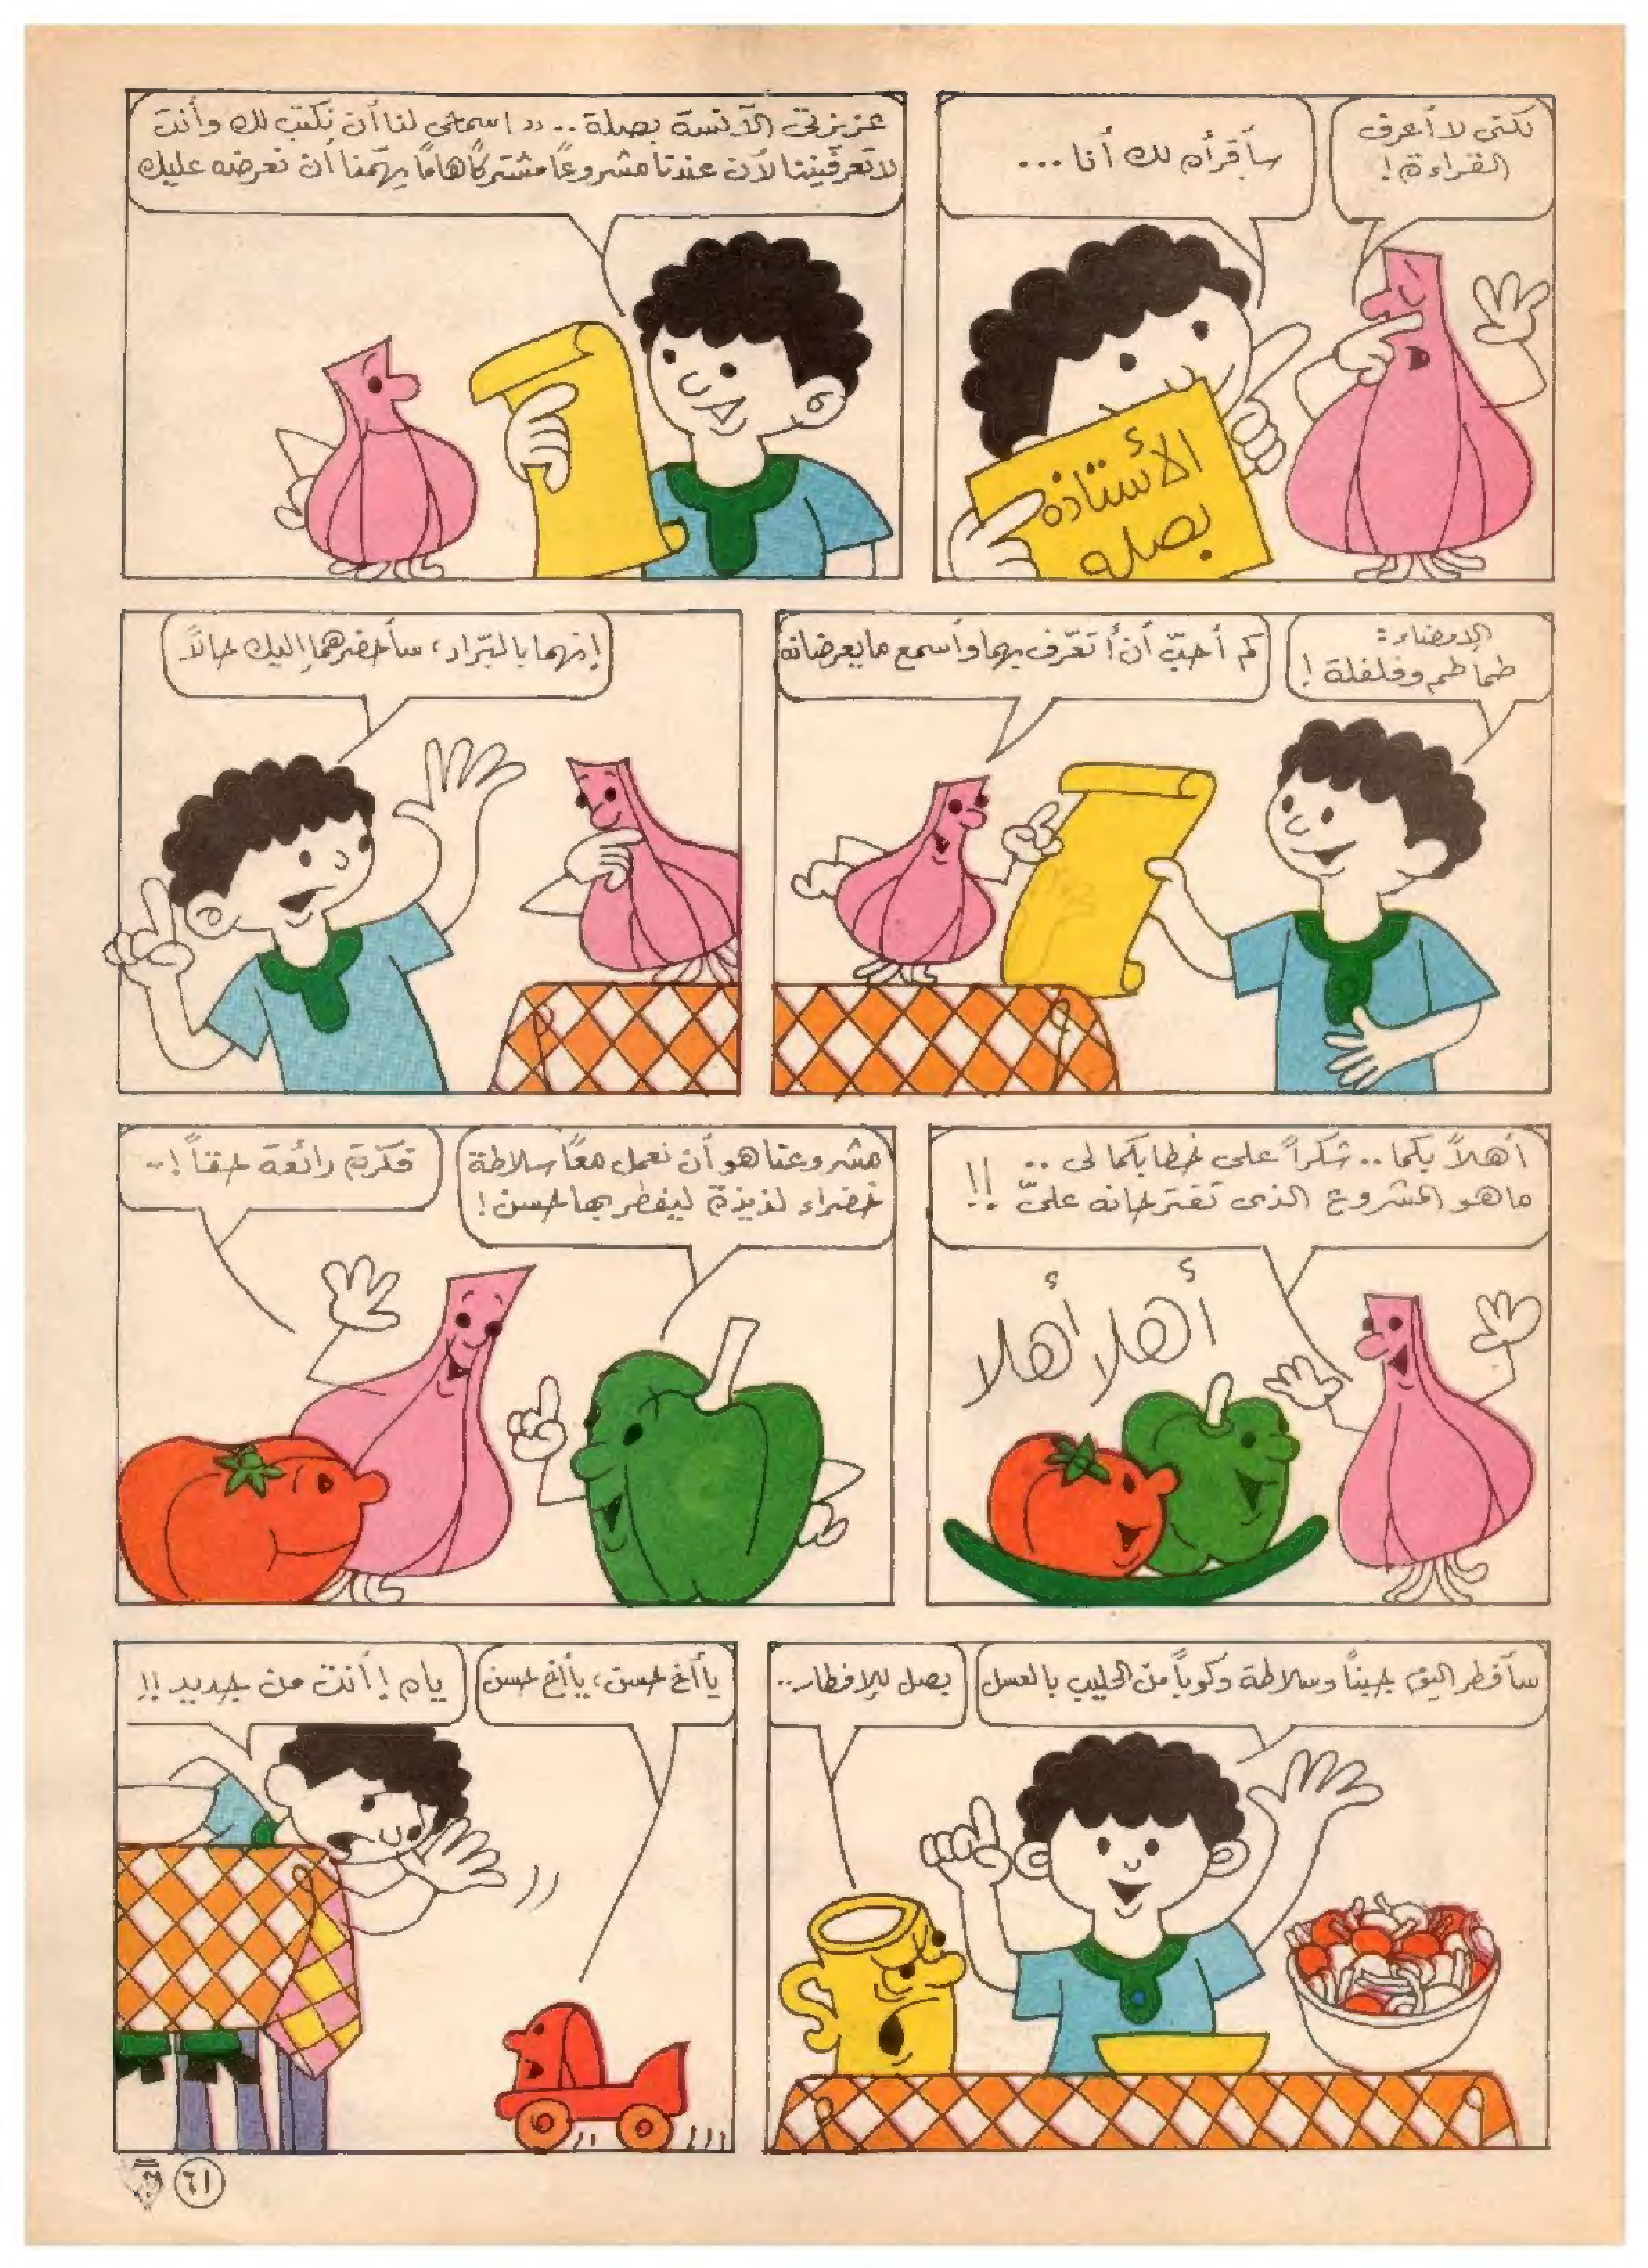 لكنى لا أعرف
القراءة !
سأقرأه لك أنا ...
الأستاذه
بصله
عزيزتى الآنسة بصلة .. « اسمحى لنا أن نكتب لك وأنت
لا تعرفيننا لأن عندنا مشروعًا مشتركًا هامًا يهمّنا أن نعرضه عليك
الإمضاء :
طماطم وفلفلة !
كم أحبّ أن أتعّرف بهما وأسمع ما يعرضانه
إنهما بالبّراد ، سأحضرهما إليك حالاً
أهلاً بكما .. شكراً على خطابكما لى ..
ما هو المشروع الذى تقترحانه علىّ !!
أهلا أهلا
مشروعنا هو أن نعمل معًا سلاطة
خضراء لذيذة ليفطر بها حسن !
فكرة رائعة حقاً !..
سأفطر اليوم جبناً وسلاطة وكوباً من الحليب بالعسل
بصل للإفطار ..
يا أخ حسن ، يا أخ حسن
يام ! أنت من جديد !!
٦١